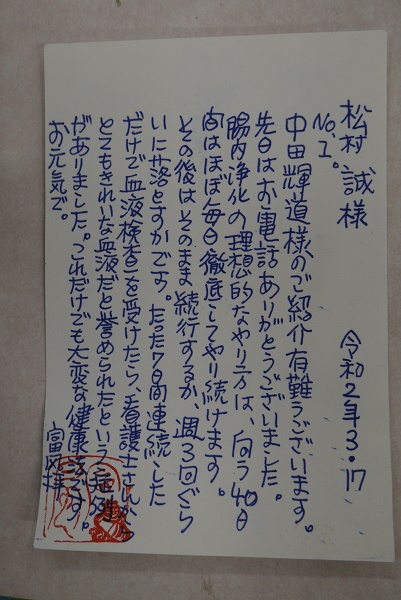 松村 誠様 令和2年3・17
No.1。
中田輝道様のご紹介有難うございます。
先日はお電話ありがとうございました。
腸内浄化の理想的なやり方は、向う40日
間はほぼ毎日徹底してやり続けます。
その後はそのまま続行するか、週3回ぐら
いに落とすかです。たった7日間連続した
だけで血液検査を受けたら、看護士さんから
とてもきれいな血液だと誉められたという
がありました。これだけでも大変な健康法です。
お元気で。